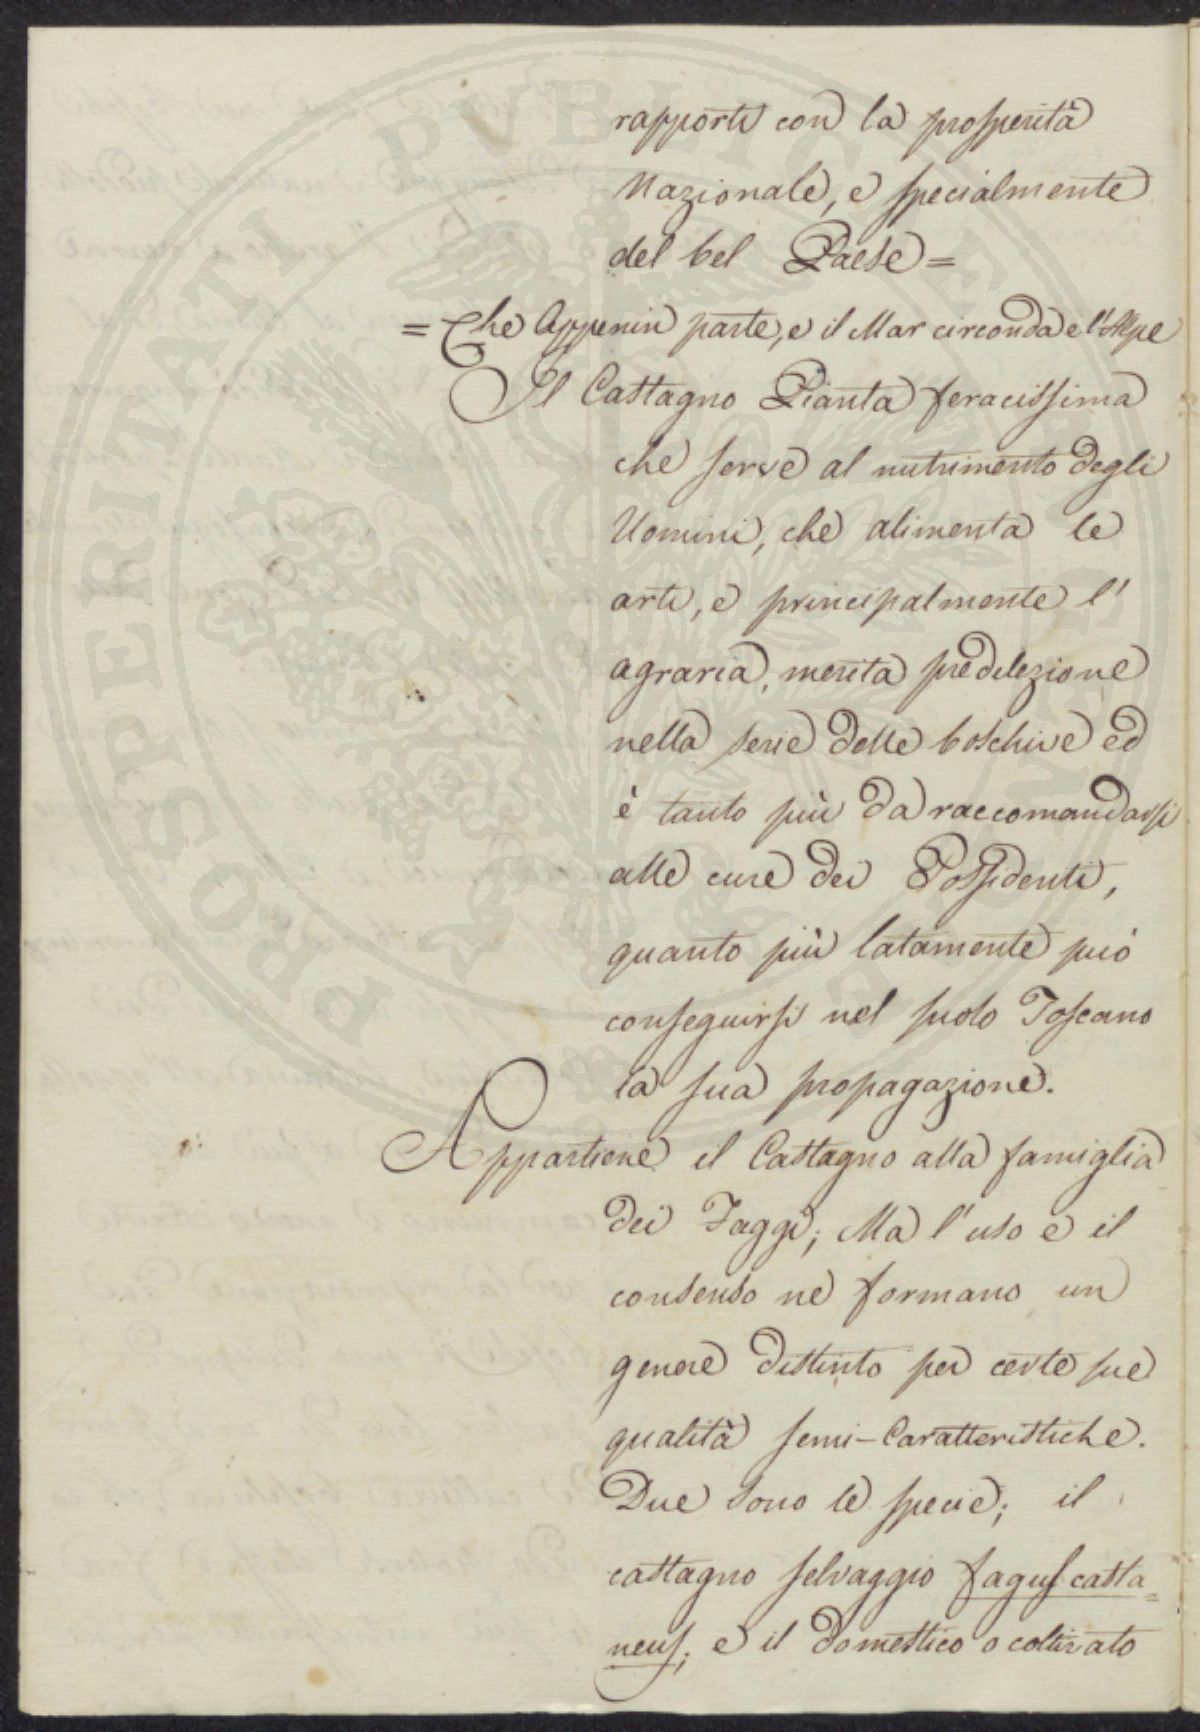 rapporti con la prosperità
Nazionale, e specialmente
del bel Paese =
= Che Appenin parte, e il Mar circonda e l'Alpe
Il Castagno Pianta feracissima
che serve al nutrimento degli
Uomini, che alimenta le
arti, e principalmente l'
agraria, merita predilezione
nella serie delle boschive ed
è tanto più da raccomandarsi
alle cure dei Possidenti,
quanto più latamente può
conseguirsi nel suolo Toscano
la sua propagazione.
Appartiene il Castagno alla famiglia
dei Faggi; Ma l'uso e il
consenso ne formano un
genere distinto per certe sue
qualità semi-Caratteristiche.
Due sono le specie; il
castagno selvaggio fagus casta=
neus; e il domestico o coltivato
PROSPERITATI PVBLICAE